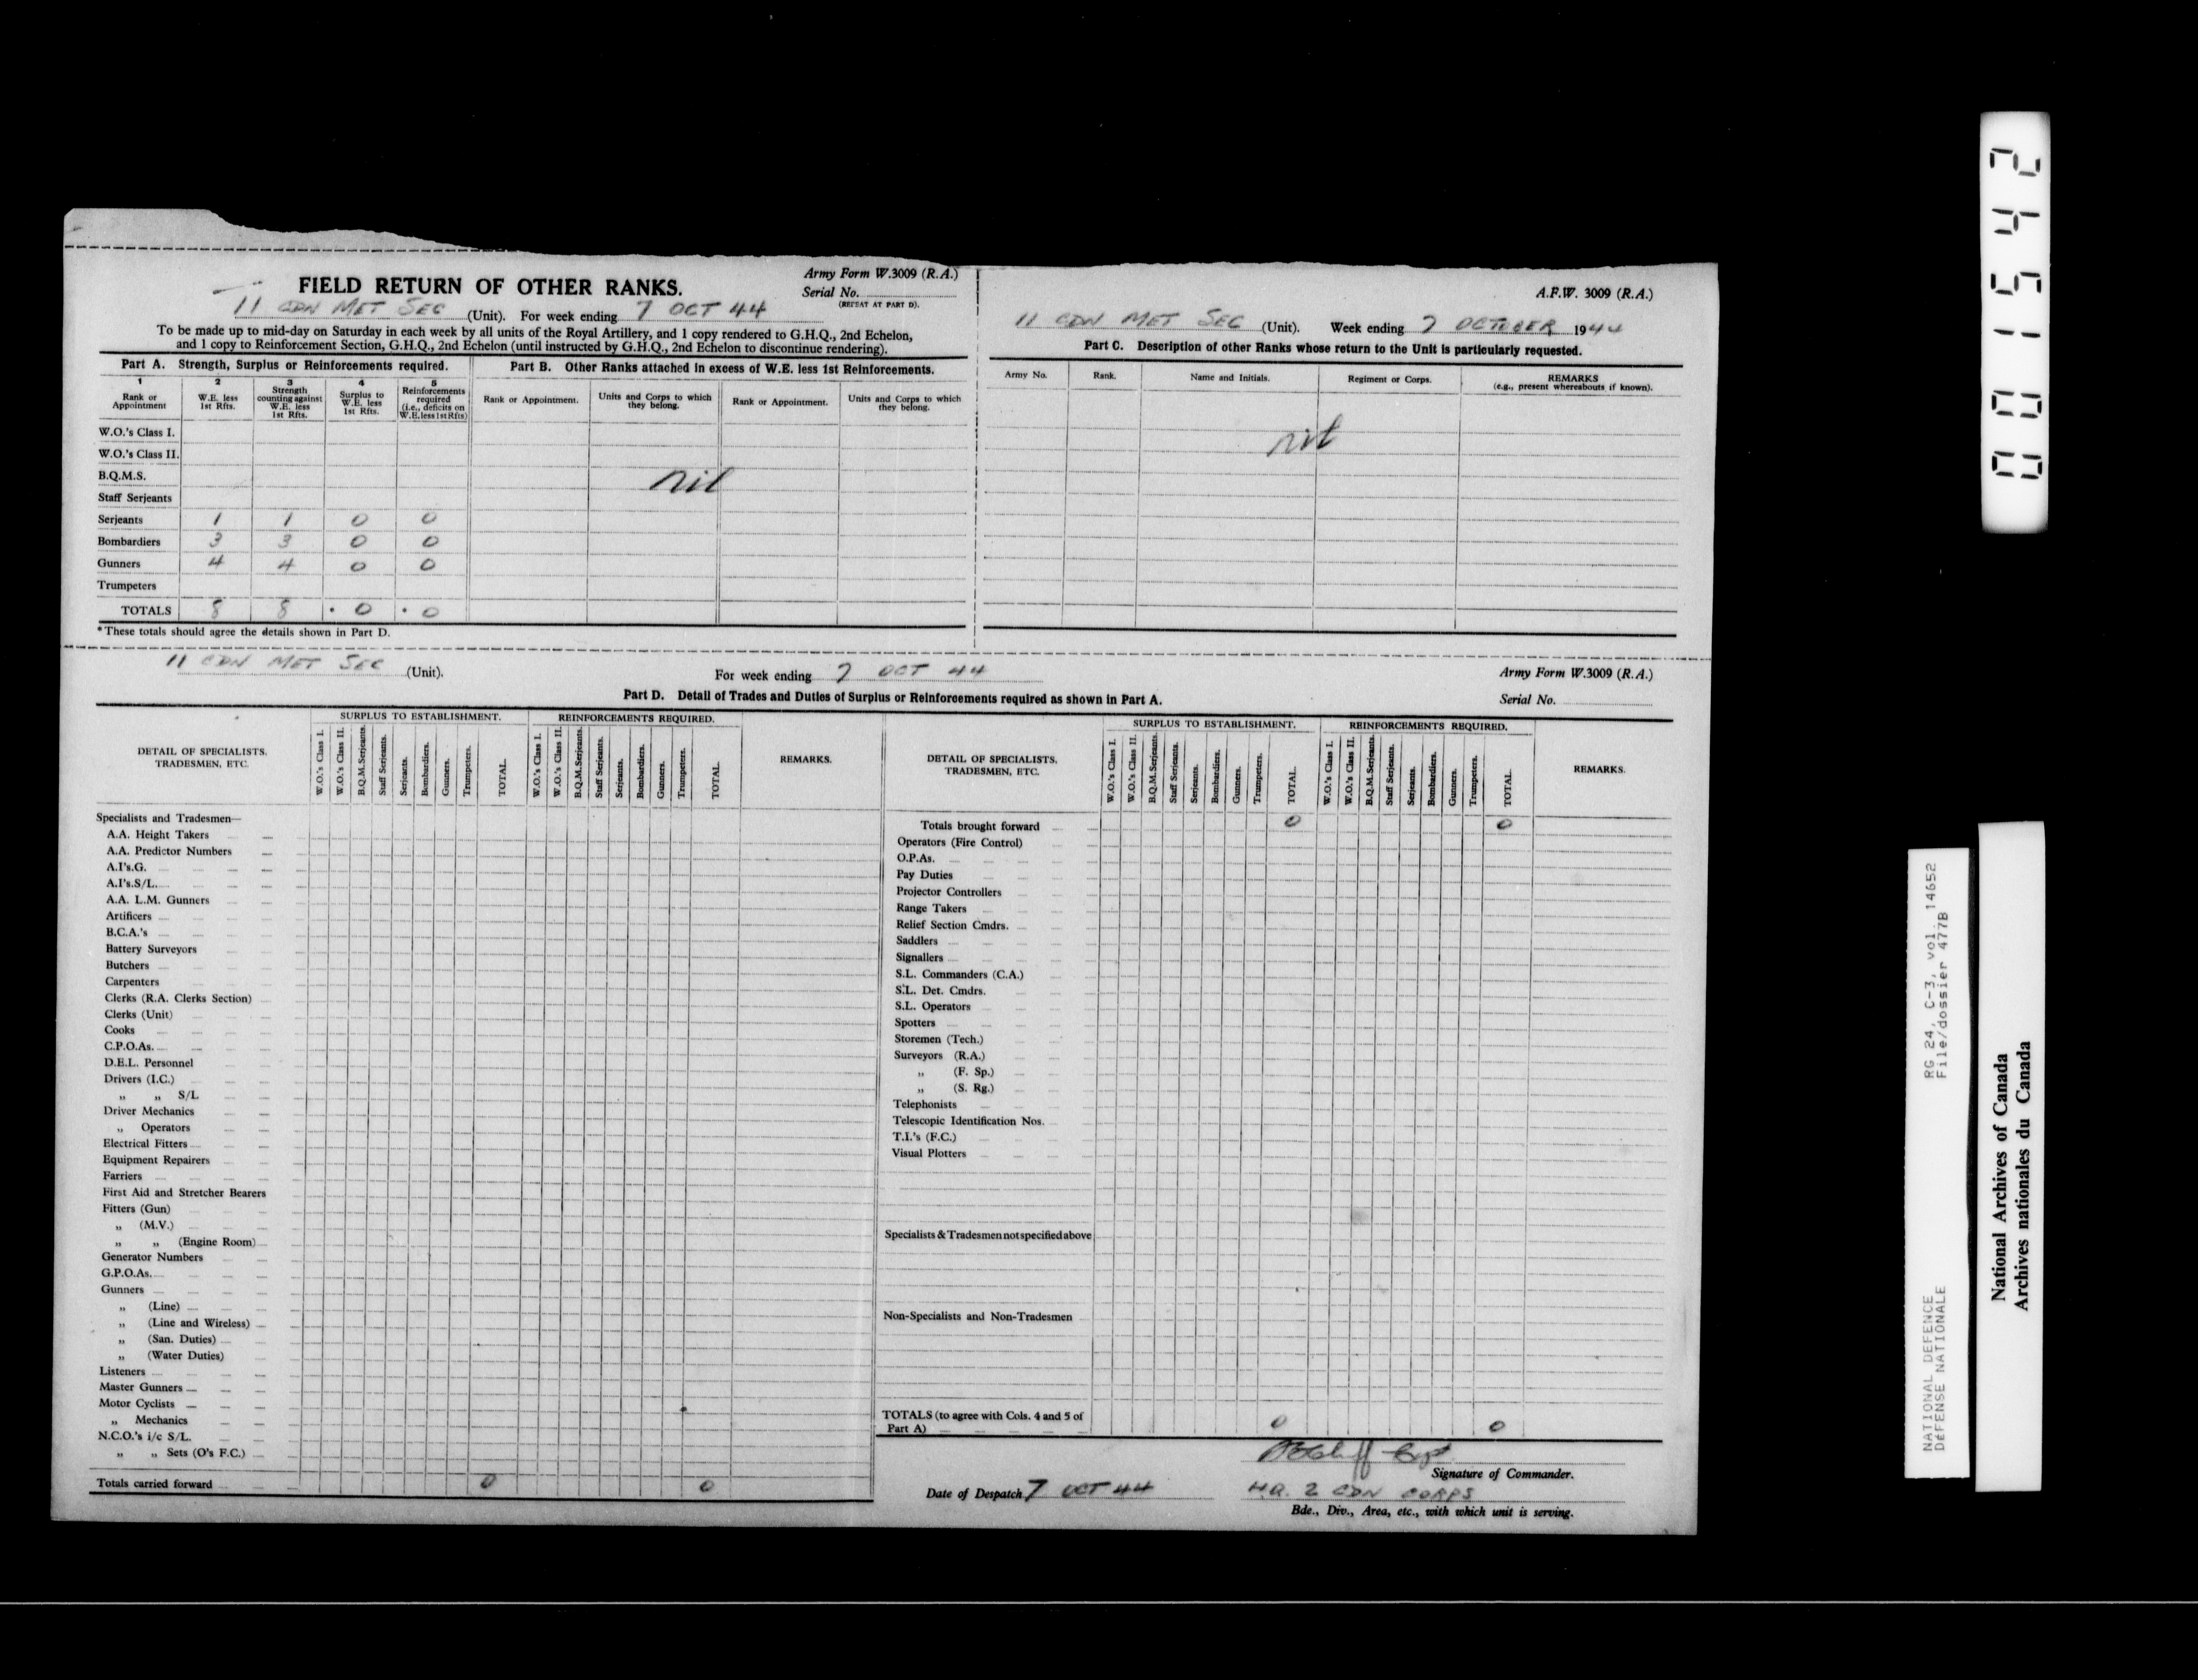 FIELD RETURN OF OTHER RANKS.
Army Form W.3009 (R.A.)
Serial No.
(REPEAT AT PART D).
11 CDN MET SEC (Unit). For week ending 7 OCT 44
To be made up to mid-day on Saturday in each week by all units of the Royal Artillery, and 1 copy rendered to G.H.Q., 2nd Echelon,
and 1 copy to Reinforcement Section, G.H.Q., 2nd Echelon (until instructed by G.H.Q., 2nd Echelon to discontinue rendering).
Part A. Strength, Surplus or Reinforcements required.
1 2 3 4 5
Rank or Appointment
W.E. less 1st Rfts.
Strength counting against W.E. less 1st Rfts.
Surplus to W.E. less 1st Rfts.
Reinforcements required (i.e., deficits on W.E. less 1st Rfts)
W.O.'s Class I.
W.O.'s Class II.
B.Q.M.S.
Staff Serjeants
Serjeants 1 1 0 0
Bombardiers 3 3 0 0
Gunners 4 4 0 0
Trumpeters
TOTALS 8 8 • 0 • 0
*These totals should agree the details shown in Part D.
Part B. Other Ranks attached in excess of W.E. less 1st Reinforcements.
Rank or Appointment. Units and Corps to which they belong. Rank or Appointment. Units and Corps to which they belong.
nil
A.F.W. 3009 (R.A.)
11 CDN MET SEC (Unit). Week ending 7 OCTOBER 1944
Part C. Description of other Ranks whose return to the Unit is particularly requested.
Army No. Rank. Name and Initials. Regiment or Corps. REMARKS
(e.g., present whereabouts if known).
nil
11 CDN MET SEC (Unit). For week ending 7 OCT 44
Army Form W.3009 (R.A.)
Part D. Detail of Trades and Duties of Surplus or Reinforcements required as shown in Part A.
Serial No.
DETAIL OF SPECIALISTS. TRADESMEN, ETC.
SURPLUS TO ESTABLISHMENT.
W.O.'s Class I. W.O.'s Class II. B.Q.M.Serjeants. Staff Serjeants. Serjeants. Bombardiers. Gunners. Trumpeters. TOTAL.
REINFORCEMENTS REQUIRED.
W.O.'s Class I. W.O.'s Class II. B.Q.M.Serjeants. Staff Serjeants. Serjeants. Bombardiers. Gunners. Trumpeters. TOTAL.
REMARKS.
Specialists and Tradesmen—
A.A. Height Takers
A.A. Predictor Numbers
A.I's.G.
A.I's.S/L.
A.A. L.M. Gunners
Artificers
B.C.A.'s
Battery Surveyors
Butchers
Carpenters
Clerks (R.A. Clerks Section)
Clerks (Unit)
Cooks
C.P.O.As.
D.E.L. Personnel
Drivers (I.C.)
„ „ S/L
Driver Mechanics
„ Operators
Electrical Fitters
Equipment Repairers
Farriers
First Aid and Stretcher Bearers
Fitters (Gun)
„ (M.V.)
„ „ (Engine Room)
Generator Numbers
G.P.O.As.
Gunners
„ (Line)
„ (Line and Wireless)
„ (San. Duties)
„ (Water Duties)
Listeners
Master Gunners
Motor Cyclists
„ Mechanics
N.C.O.'s i/c S/L.
„ „ Sets (O's F.C.)
Totals carried forward 0 0
DETAIL OF SPECIALISTS. TRADESMEN, ETC.
SURPLUS TO ESTABLISHMENT.
W.O.'s Class I. W.O.'s Class II. B.Q.M.Serjeants. Staff Serjeants. Serjeants. Bombardiers. Gunners. Trumpeters. TOTAL.
REINFORCEMENTS REQUIRED.
W.O.'s Class I. W.O.'s Class II. B.Q.M.Serjeants. Staff Serjeants. Serjeants. Bombardiers. Gunners. Trumpeters. TOTAL.
REMARKS.
Totals brought forward 0 0
Operators (Fire Control)
O.P.As.
Pay Duties
Projector Controllers
Range Takers
Relief Section Cmdrs.
Saddlers
Signallers
S.L. Commanders (C.A.)
S.L. Det. Cmdrs.
S.L. Operators
Spotters
Storemen (Tech.)
Surveyors (R.A.)
„ (F. Sp.)
„ (S. Rg.)
Telephonists
Telescopic Identification Nos.
T.I.'s (F.C.)
Visual Plotters
Specialists & Tradesmen not specified above
Non-Specialists and Non-Tradesmen
TOTALS (to agree with Cols. 4 and 5 of
Part A) 0 0
Capt
Signature of Commander.
Date of Despatch 7 OCT 44
H.Q. 2 CDN CORPS
Bde., Div., Area, etc., with which unit is serving.
001542
RG 24, C-3, vol. 14652
File/dossier 477B
NATIONAL DEFENCE
DÉFENSE NATIONALE
National Archives of Canada
Archives nationales du Canada